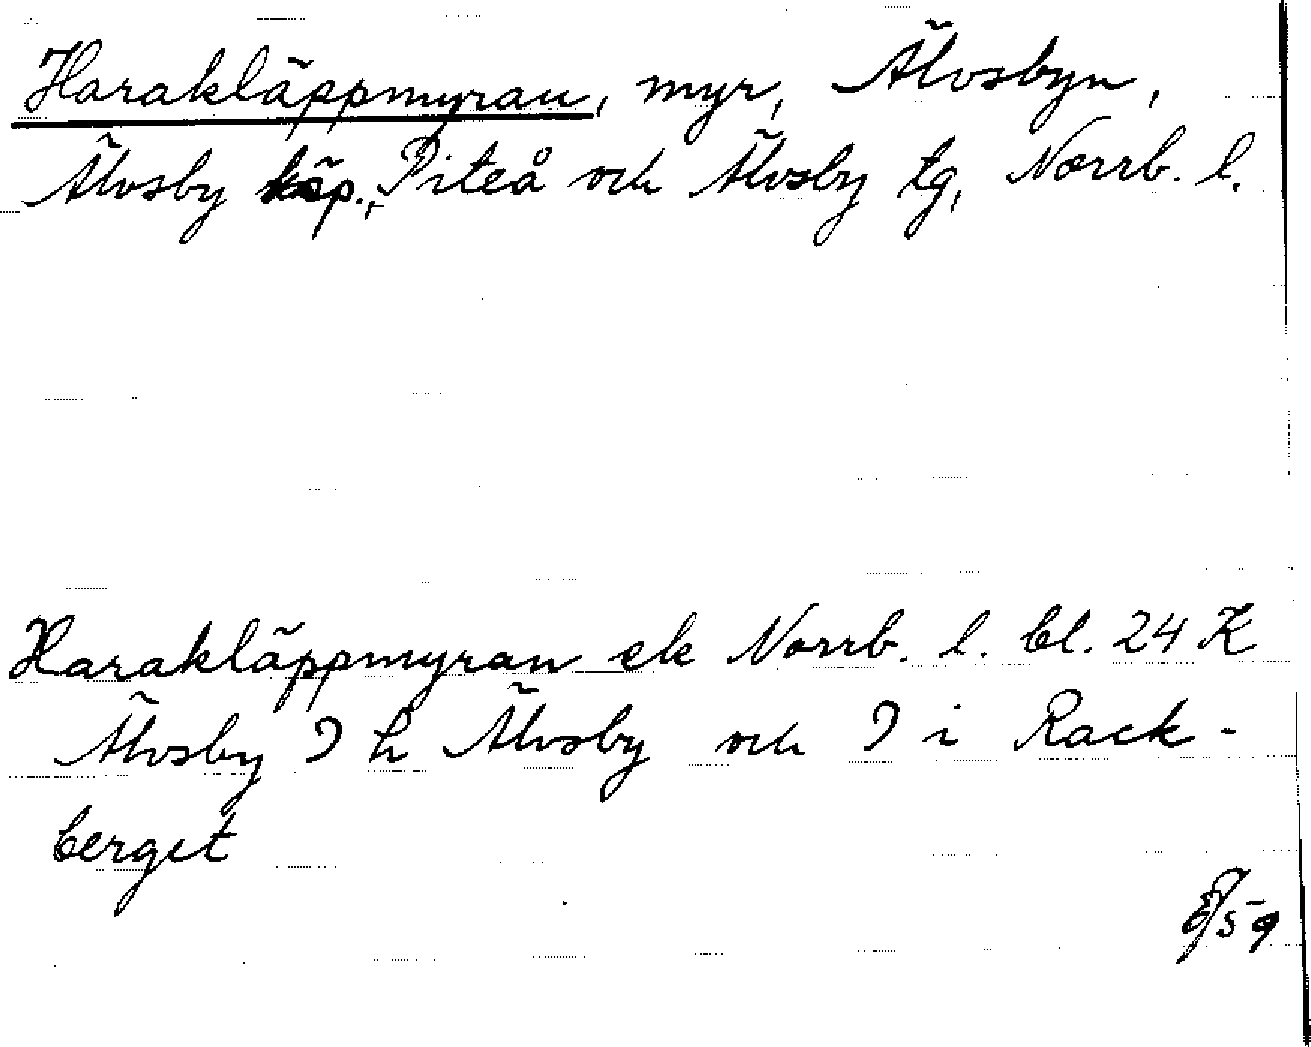 Harakläppmyran, myr, Älvsbyn,
Älvsby köp., Piteå och Älvsby tg, Norrb. l.
Harakläppmyran ek Norrb. l. bl. 24 K
Älvsby I h Älvsby och I i Rack-
berget